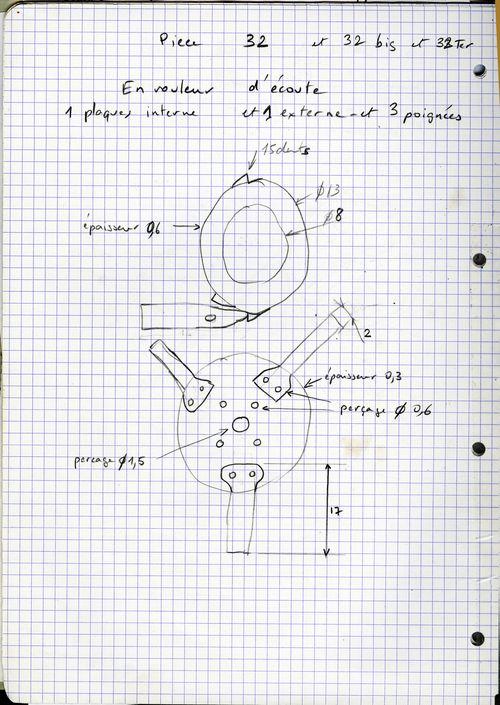 Piece 32 et 32 bis et 32 Ter
En rouleur d'écoute
1 plaques interne et 1 externe et 3 poignées
15 dents
Ø13
Ø8
épaisseur 0,6
2
épaisseur 0,3
perçage Ø 0,6
perçage Ø1,5
17